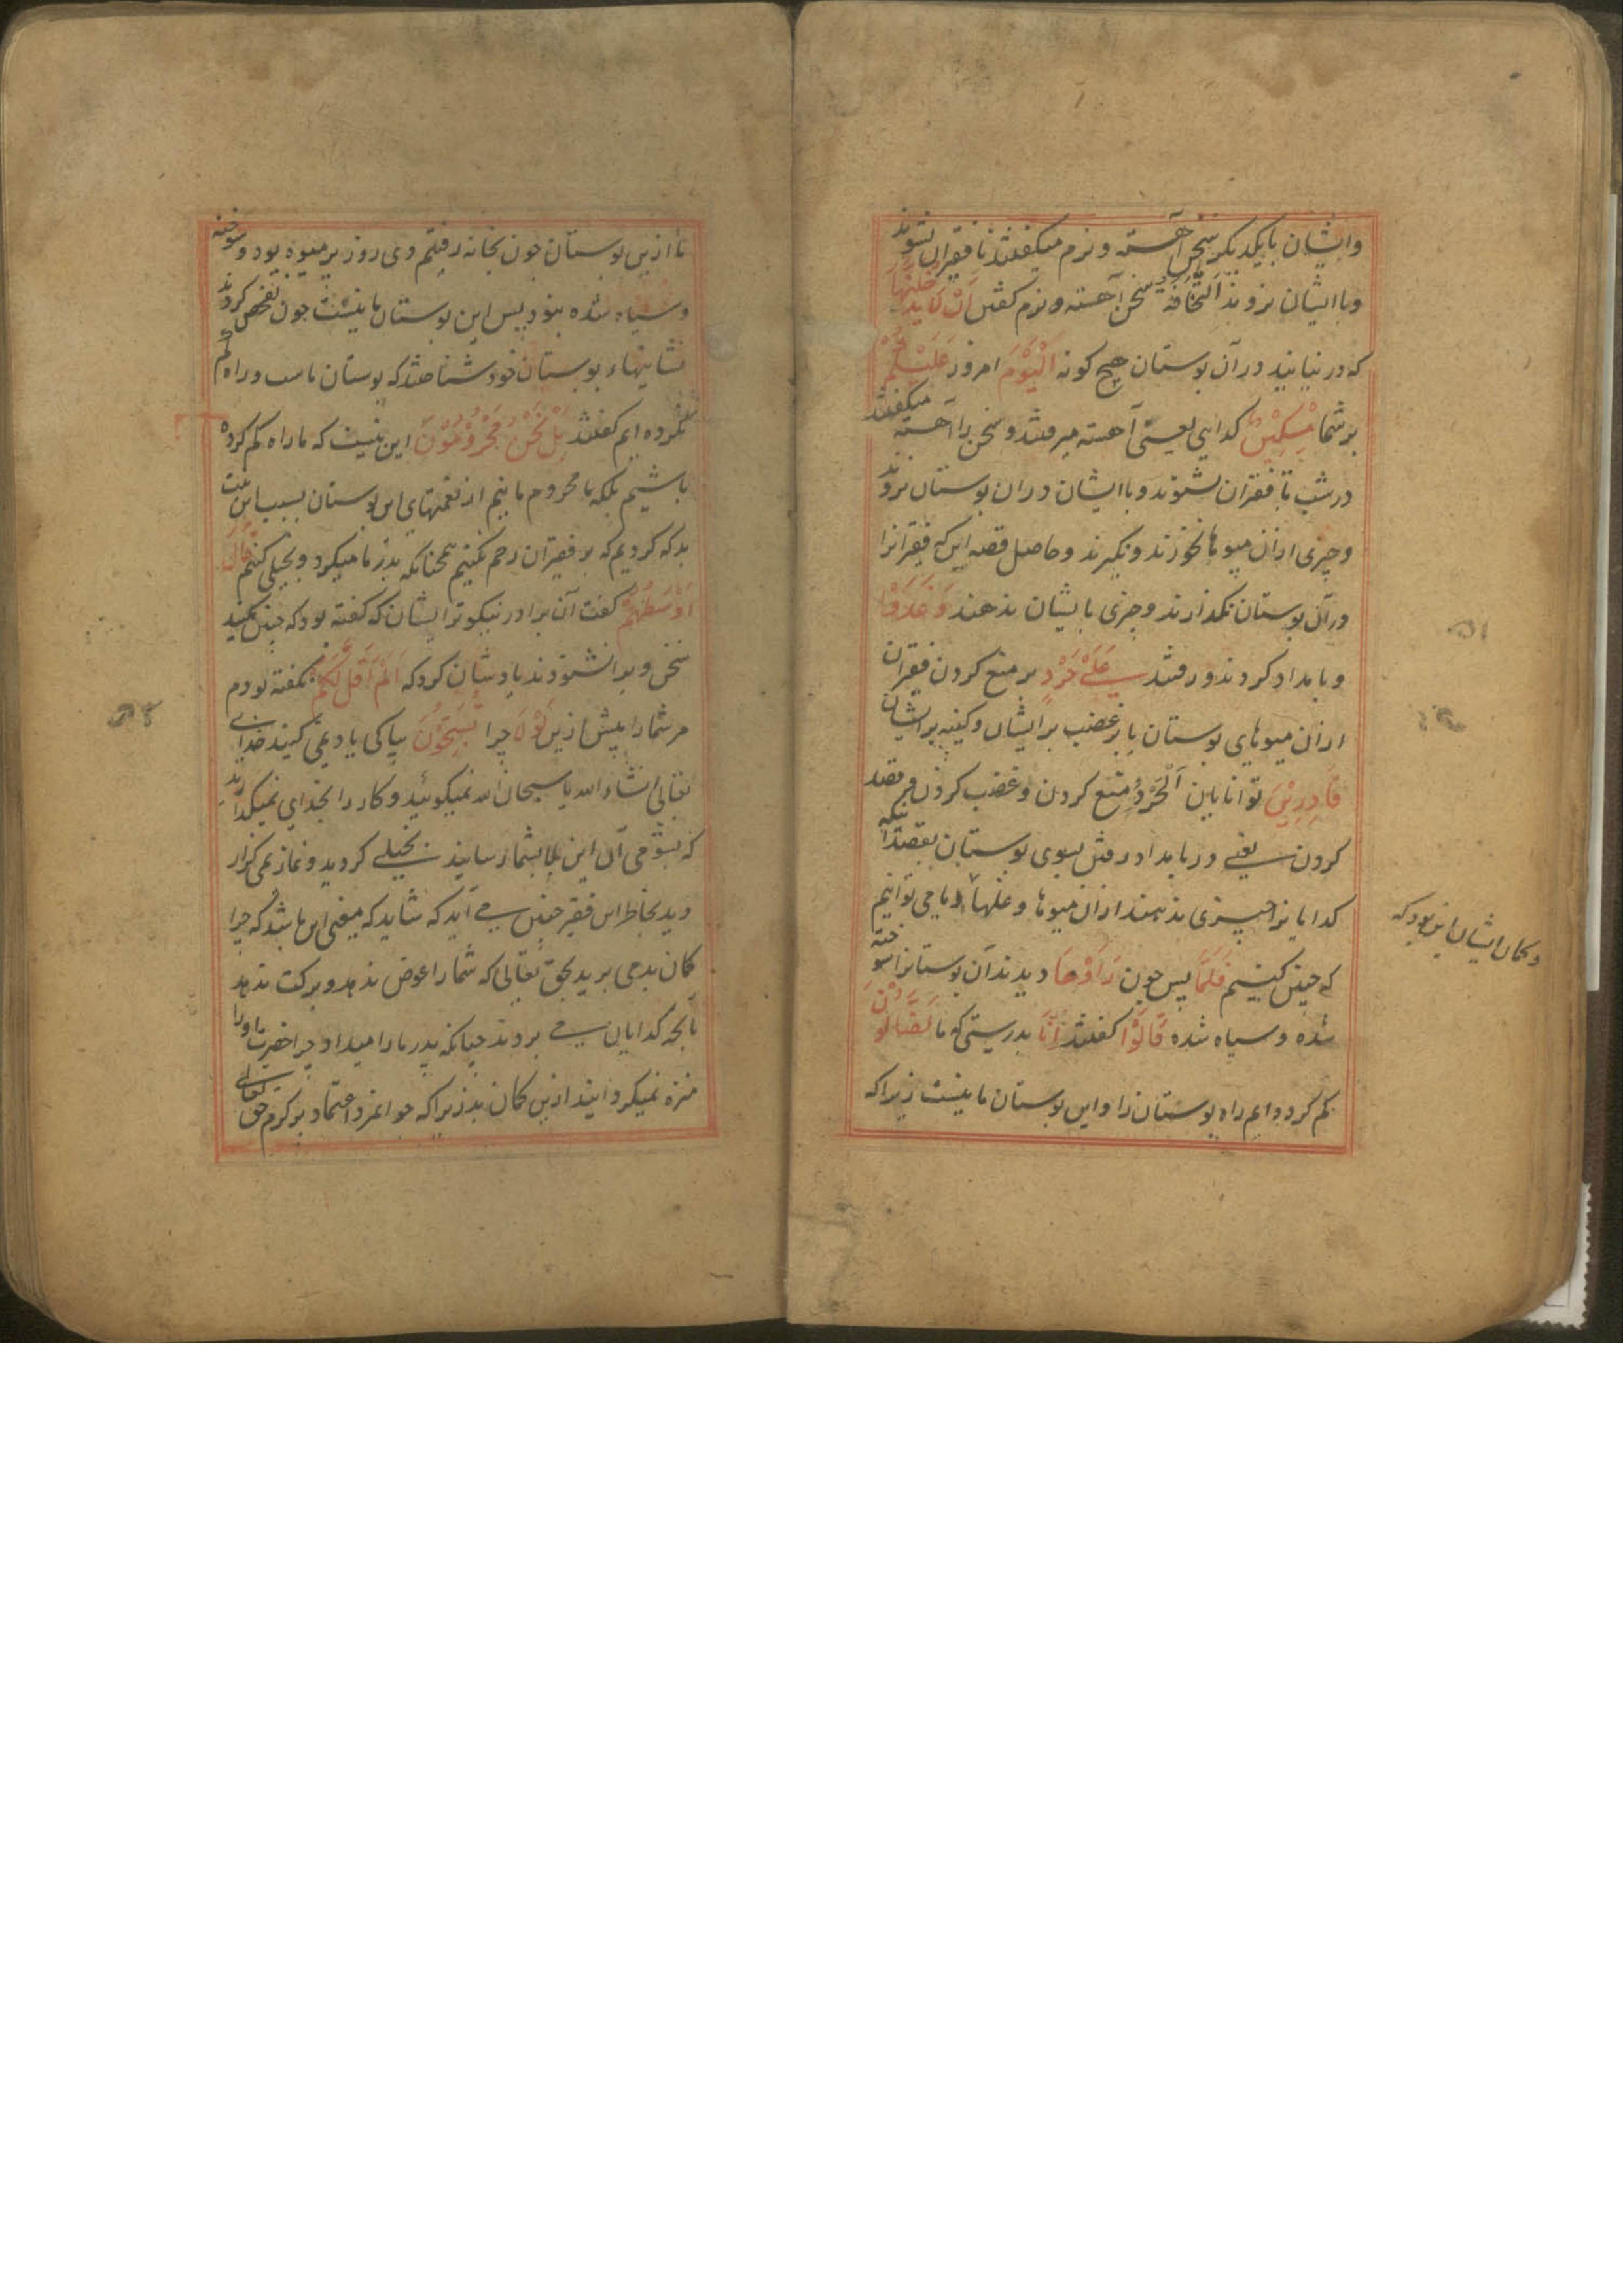 وایشان بایکدیکر سخن آهسته و نرم میکفتند تا فقیران نشنوند
وباایشان نروند اَلتَّخَافُتُ سخن آهسته ونرم کفتن اَنْ لَا یَدْخُلَنَّهَا
که درنیایند درآن بوستان هیچ کونه اَلْیَوْمَ امروز عَلَیْکُمْ
برشما مِسْکِیْنٌ کدایی یعنی آهسته میرفتند و سخن را آهسته میکفتند
درشب تا فقیران نشنوند وباایشان دران بوستان نروند
وچیزی ازان میوها نخورند ونکیرند وحاصل قصه این که فقیرانرا
درآن بوستان نکذارند وچیزی باایشان ندهند وَغَدَوْا
وبامداد کردند ورفتند عَلٰی حَرْدٍ برمنع کردن فقیران
ازان میوهای بوستان یا برغضب برایشان وکینه برایشان
قَادِرِیْنَ توانایان اَلْحَرْدُ منع کردن وغضب کردن و قصد
کردن یعنی دربامداد رفتن بسوی بوستان بقصد آنکه
کدایانرا چیزی ندهند ازان میوها وغلها و ما می توانیم
وکمان ایشان این بود که
که چنین کنیم فَلَمَّا پس چون رَاَوْهَا دیدند آن بوستانرا سوخته
شده وسیاه شده قَالُوْا کفتند اِنَّا بدرستی که ما لَضَالُّوْنَ
کم کرده ایم راه بوستان را واین بوستان ما نیست زیراکه
ماازین بوستان چون بخانه رفتیم دی روز پرمیوه بود وسوخته
وسیاه شده نبود پس این بوستان ما نیست چون تفحص کردند
نشانیهاء بوستان خود شناختند که بوستان ماست وراه کم
نکرده ایم کفتند بَلْ نَحْنُ مَحْرُوْمُوْنَ این نیست که ماراه کم کرده
باشیم بلکه ما محروم ماندیم از نعمتهای این بوستان بسبب این نیت
بدکه کردیم که برفقیران رحم نکنیم همچنانکه پدر ما میکرد و بخیلی کنیم قَالَ
اَوْسَطُهُمْ کفت آن برادر نیکوتر ایشان که کفته بود که چنین مکنید
سخن ویرا نشنودند یادشان کرد که اَلَمْ اَقُلْ لَکُمْ نکفته بودم
مرشمارا پیش ازین لَوْلَا چرا تُسَبِّحُوْنَ بپاکی یاد نمی کنید خدای
تعالی انشاء الله یا سبحان الله نمیکوئید وکار را بخدای نمیکذارید
که بشومی آن این بلا بشما رسانید بخیلی کردید ونماز نمی کزار
دید بخاطر این فقیر چنین می آید که شاید که معنی این باشد که چرا
کمان بد می برید بحق تعالی که شمارا عوض ندهد وبرکت ندهد
تا بجه کدایان می بروند چنانکه پدر مارا میداد چرا حضرت اورا
منزه نمیکردانید ازین کمان بد زیراکه جوانمرد اعتماد برکرم حق تعالی